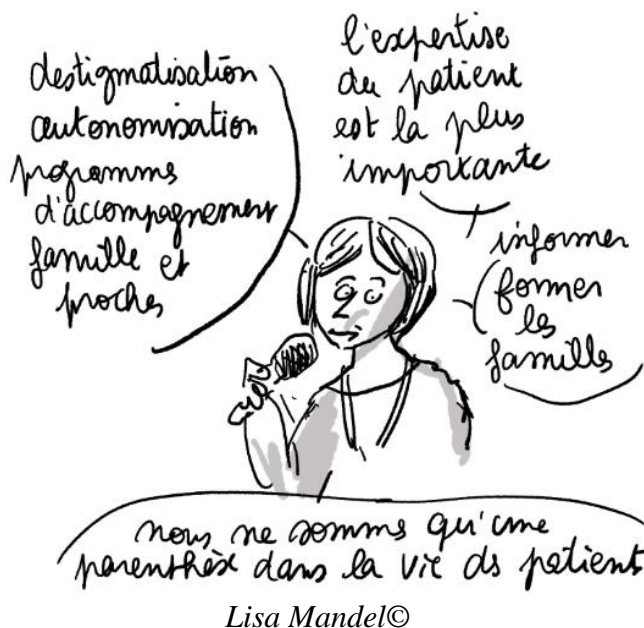 destigmatisation
autonomisation
programms
d'accompagnement
famille et
proches
l'expertise
du patient
est la plus
importante
informer
former
les
familles
nous ne somms qu'une
parenthèse dans la vie ds patient
Lisa Mandel©